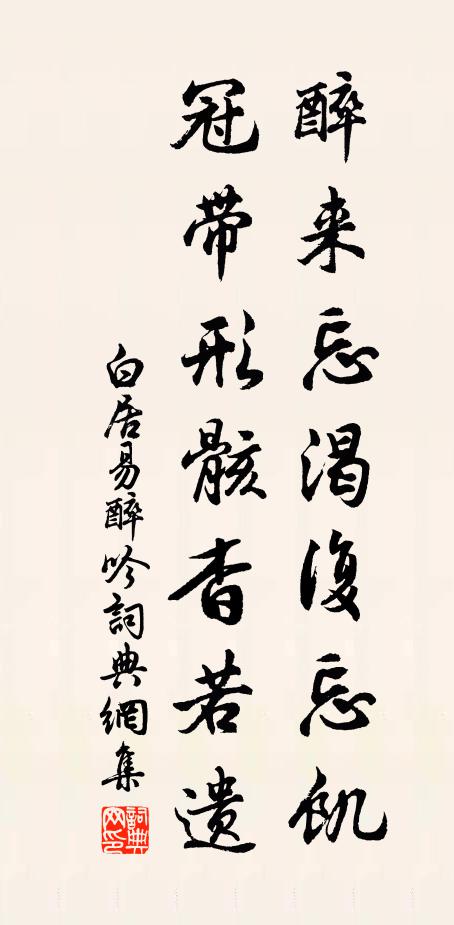 醉来忘渴復忘飢
冠带形骸杳若遺
白居易醉吟詞典網集
詞典網印